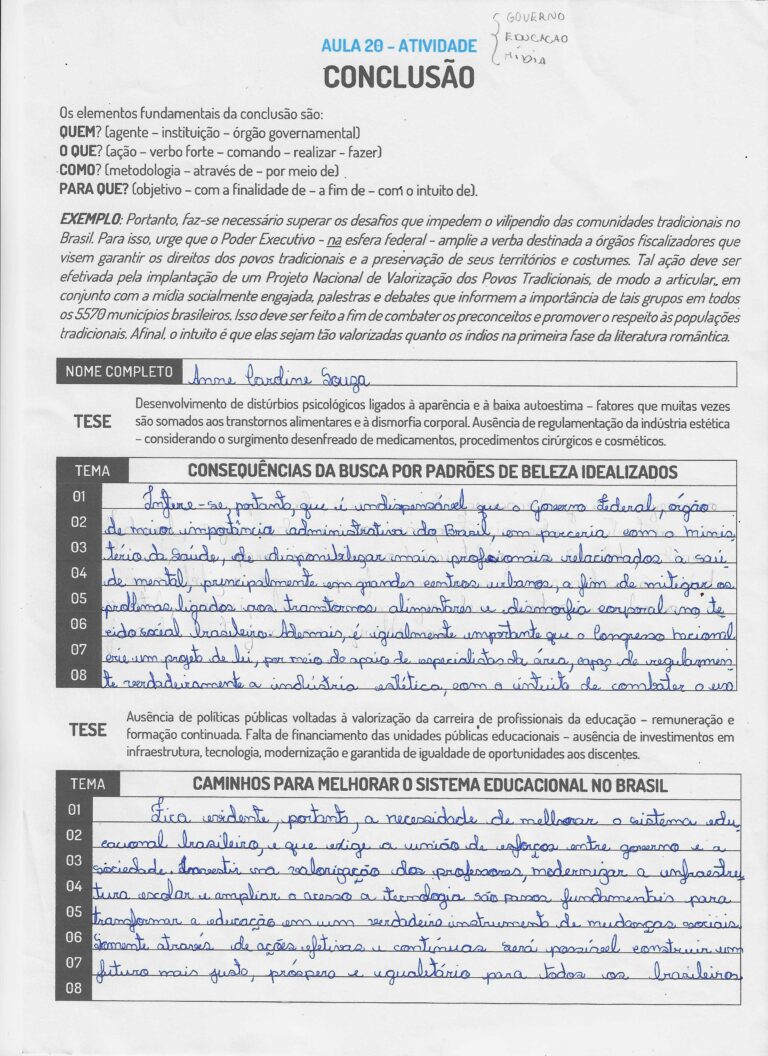 GOVERNO
EDUCAÇÃO
MÍDIA
AULA 20 – ATIVIDADE
CONCLUSÃO
Os elementos fundamentais da conclusão são:
QUEM? (agente – instituição – órgão governamental)
O QUE? (ação – verbo forte – comando – realizar - fazer)
COMO? (metodologia – através de – por meio de)
PARA QUE? (objetivo – com a finalidade de – a fim de – com o intuito de).
EXEMPLO: Portanto, faz-se necessário superar os desafios que impedem o vilipendio das comunidades tradicionais no
Brasil. Para isso, urge que o Poder Executivo - na esfera federal - amplie a verba destinada a órgãos fiscalizadores que
visem garantir os direitos dos povos tradicionais e a preservação de seus territórios e costumes. Tal ação deve ser
efetivada pela implantação de um Projeto Nacional de Valorização dos Povos Tradicionais, de modo a articular, em
conjunto com a mídia socialmente engajada, palestras e debates que informem a importância de tais grupos em todos
os 5570 municípios brasileiros. Isso deve ser feito a fim de combater os preconceitos e promover o respeito às populações
tradicionais. Afinal, o intuito é que elas sejam tão valorizadas quanto os índios na primeira fase da literatura romântica.
NOME COMPLETO Anne Caroline Souza
TESE Desenvolvimento de distúrbios psicológicos ligados à aparência e à baixa autoestima – fatores que muitas vezes
são somados aos transtornos alimentares e à dismorfia corporal. Ausência de regulamentação da indústria estética
– considerando o surgimento desenfreado de medicamentos, procedimentos cirúrgicos e cosméticos.
TEMA CONSEQUÊNCIAS DA BUSCA POR PADRÕES DE BELEZA IDEALIZADOS
01 Infere-se, portanto, que é indispensável que o Governo Federal, órgão
02 de maior importância administrativa do Brasil, em parceria com o minis
03 tério da saúde, de disponibilizar mais profissionais relacionados à saú
04 de mental, principalmente em grandes centros urbanos, a fim de mitigar os
05 problemas ligados aos transtornos alimentares e dismorfia corporal no te
06 cido social brasileiro. Ademais, é igualmente importante que o Congresso nacional
07 crie um projeto de lei, por meio do apoio de especialistas da área, capaz de regulamen
08 te verdadeiramente a indústria estética, com o intuito de combater o us
TESE Ausência de políticas públicas voltadas à valorização da carreira de profissionais da educação – remuneração e
formação continuada. Falta de financiamento das unidades públicas educacionais – ausência de investimentos em
infraestrutura, tecnologia, modernização e garantida de igualdade de oportunidades aos discentes.
TEMA CAMINHOS PARA MELHORAR O SISTEMA EDUCACIONAL NO BRASIL
01 Fica evidente, portanto, a necessidade de melhorar o sistema edu
02 cacional brasileiro, e que exige a união de esforços entre governo e a
03 sociedade. Investir na valorização dos professores, modernizar a infraestru
04 tura escolar e ampliar o acesso à tecnologia são passos fundamentais para
05 transformar a educação em um verdadeiro instrumento de mudanças sociais.
06 Somente através de ações efetivas e contínuas será possível construir um
07 futuro mais justo, próspero e igualitário para todos os brasileiros
08